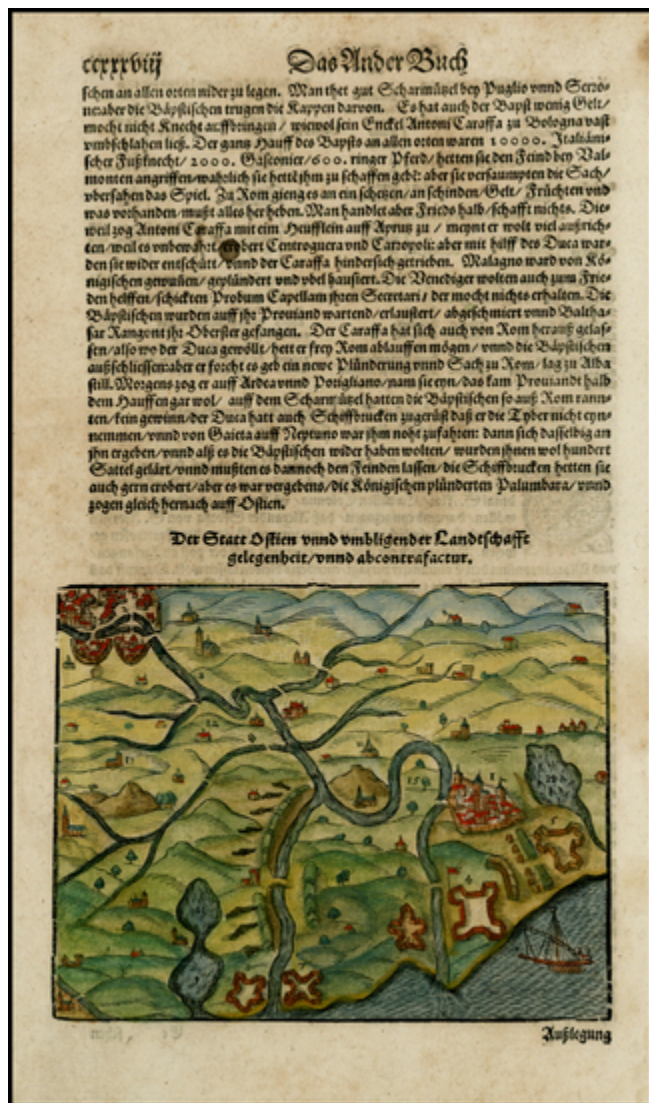 ccxxxviij
Das Ander Buch
schen an allen orten nider zu legen. Man thet gut Scharmützel bey Puglio vnnd Serzo-
ne: aber die Bäpstischen trugen die Kappen darvon. Es hat auch der Bapst wenig Gelt/
mocht nicht Knecht auffbringen/ wiewol sein Enckel Antoni Caraffa zu Bologna vast
vmbschlahen ließ. Der gantz Hauff des Bapsts an allen orten waren 10000. Italiäni-
scher Fußknecht/ 2000. Gasconier/ 600. ringer Pferd/ hetten sie den Feind bey Val-
monten angriffen/ wahrlich sie hettē jhm zu schaffen gebē: aber sie versaumpten die Sach/
vbersahen das Spiel. Zu Rom gieng es an ein schetzen/ an schinden/ Gelt/ Früchten vnd
was vorhanden/ mußt alles her heben. Man handlet aber Frieds halb/ schafft nichts. Die-
weil zog Antoni Caraffa mit eim Heufflein auff Apruz zu/ meynt er wolt viel außrich-
ten/ weil es vnbewahrt/ erobert Centroguera vnd Carropoli: aber mit hilff des Duca war-
den sie wider entschütt/ vnnd der Caraffa hindersich getrieben. Malagno ward von Kö-
nigischen gewuñen/ geplündert vnd vbel hausiert. Die Venediger wolten auch zum Frie-
den helffen/ schickten Probum Capellam jhren Secretari/ der mocht nichts erhalten. Die
Bäpstischen wurden auff jhr Proviand wartend/ erlaustert/ abgeschmiert vnnd Baltha-
sar Rangont jhr Oberster gefangen. Der Caraffa hat sich auch von Rom herauß gelas-
sen/ also wo der Duca gewöllt/ hett er frey Rom ablauffen mögen/ vnnd die Bäpstischen
außschliessen: aber er forcht es geb ein newe Plünderung vnnd Sach zu Rom/ lag zu Alba
still. Morgens zog er auff Ardea vnnd Porigliano/ nam sie eyn/ das kam Prouiandt halb
dem Hauffen gar wol/ auff dem Scharmützel hatten die Bäpstischen so auß Rom rann-
ten/ kein gewinn/ der Duca hatt auch Schiffbrucken zugerüst daß er die Tyber nicht eyn-
nemmen/ vnnd von Gaieta auff Neptuno war jhm noht zufahren: dann sich dasselbig an
jhn ergeben/ vnnd alß es die Bäpstischen wider haben wolten/ wurden jhnen wol hundert
Sattel gelärt/ vnnd mußten es dannoch den Feinden lassen/ die Schiffbrucken hetten sie
auch gern erobert/ aber es war vergebens/ die Königischen plünderten Palumbara/ vnnd
zogen gleich hernach auff Ostien.
Der Statt Ostien vnnd vmbligender Landtschafft
gelegenheit/ vnnd abcontrafactur.
Außlegung